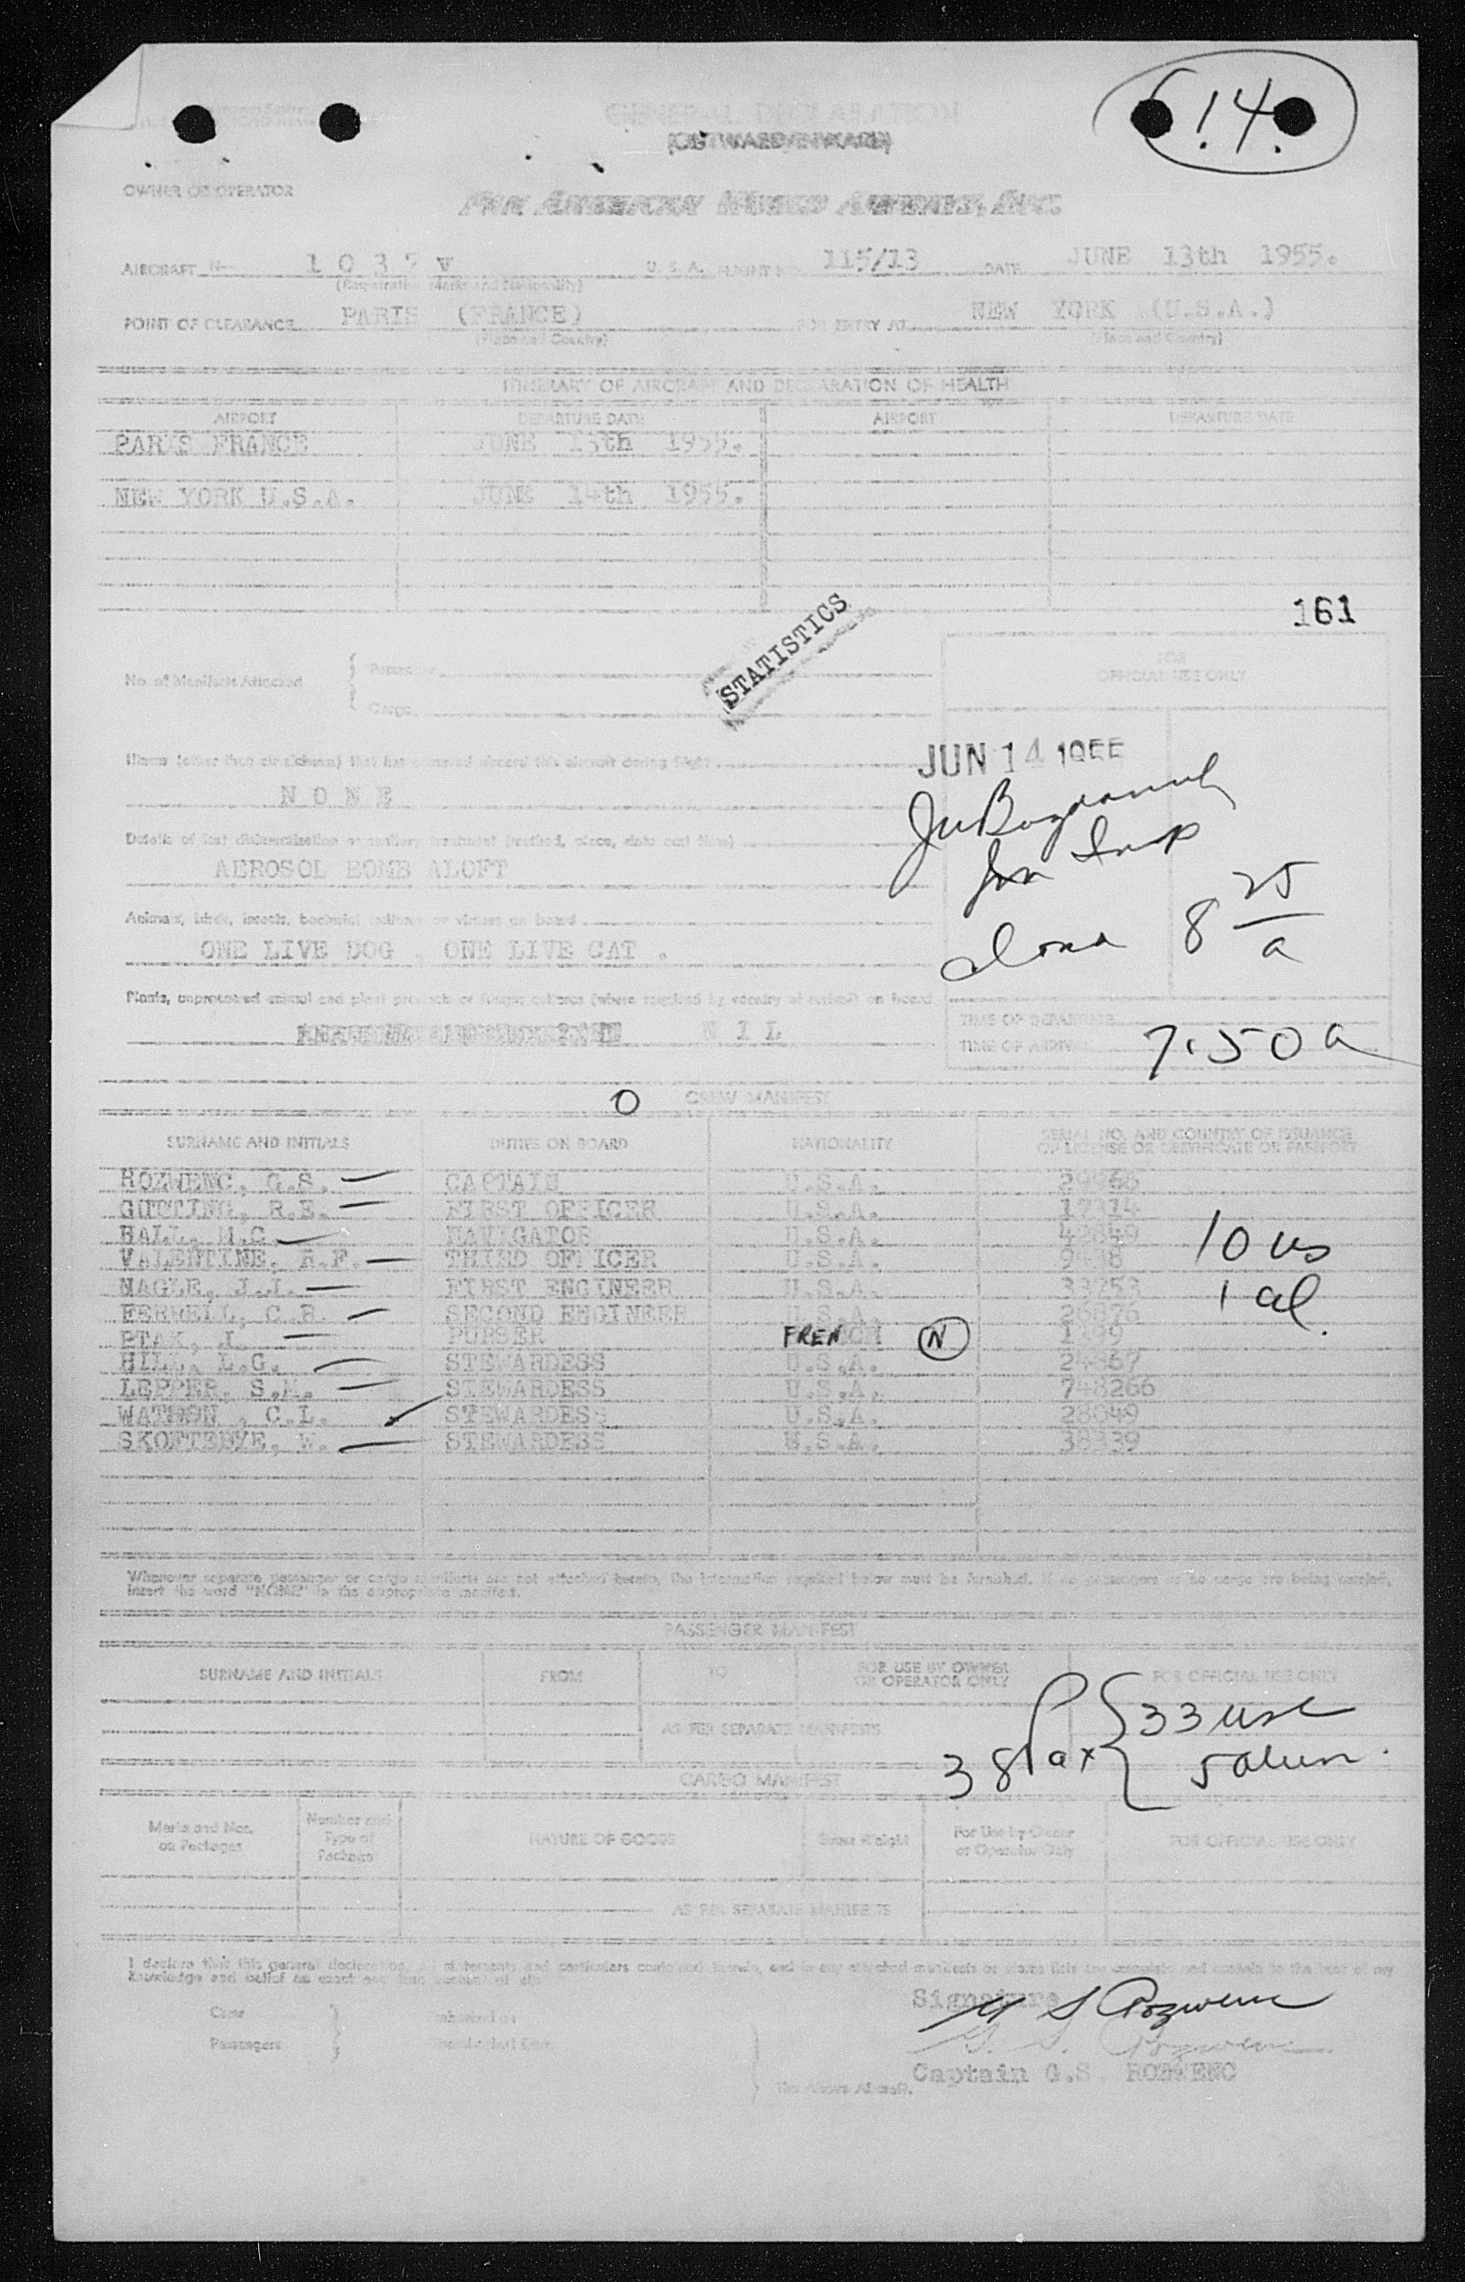 6.14.
GENERAL DECLARATION
(OUTWARD/INWARD)
OWNER OR OPERATOR
PAN AMERICAN WORLD AIRWAYS, INC.
AIRCRAFT N- 1 0 3 V U. S. A. FLIGHT NO. 115/13 DATE JUNE 13th 1955.
(Registration Marks and Nationality)
POINT OF CLEARANCE PARIS (FRANCE) FOR ENTRY AT NEW YORK (U.S.A.)
(Place and Country) (Place and Country)
ITINERARY OF AIRCRAFT AND DECLARATION OF HEALTH
AIRPORT DEPARTURE DATE AIRPORT DEPARTURE DATE
PARIS FRANCE JUNE 13th 1955.
NEW YORK U.S.A. JUNE 14th 1955.
161
STATISTICS
No. of Manifests Attached { Passenger
Cargo
FOR
OFFICIAL USE ONLY
JUN 14
N O N E
Details of last disinsectization or sanitary treatment (method, place, date and time)
AEROSOL BOMB ALOFT
Animals, birds, insects, bacterial cultures or viruses on board
ONE LIVE DOG , ONE LIVE CAT .
8 25/a
Plants, unprocessed animal and plant products or fungus cultures (where required by country of arrival) on board
N I L
TIME OF DEPARTURE
TIME OF ARRIVAL 7.50 a
O CREW MANIFEST
SURNAME AND INITIALS DUTIES ON BOARD NATIONALITY SERIAL NO. AND COUNTRY OF ISSUANCE
OF LICENSE OR CERTIFICATE OR PASSPORT
ROZWENC, G.S. CAPTAIN U.S.A.
GUTTING, R.E. FIRST OFFICER U.S.A. 17314
HALL, M.C. NAVIGATOR U.S.A. 42849
VALENTINE, R.F. THIRD OFFICER U.S.A.
10 us
NAGLE, J.J. FIRST ENGINEER U.S.A. 33253
1 al.
FERRELL, C.B. SECOND ENGINEER U.S.A. 26876
PTAK, J. PURSER FRENCH N 1299
HILL, L.G. STEWARDESS U.S.A.
LEPPER, S.M. STEWARDESS U.S.A. 748266
WATSON , C.L. STEWARDESS U.S.A. 28049
SKOFTEBYE, W. STEWARDESS U.S.A. 38339
Whenever separate passenger or cargo manifests are not attached hereto, the information required below must be furnished. If no passengers or no cargo are being carried,
insert the word "NONE" in the appropriate manifest.
PASSENGER MANIFEST
SURNAME AND INITIALS FROM TO FOR USE BY OWNER
OR OPERATOR ONLY FOR OFFICIAL USE ONLY
AS PER SEPARATE MANIFESTS
38 Pax { 33 usc
5 alien.
CARGO MANIFEST
Marks and Nos.
on Packages Number and
Type of
Packages NATURE OF GOODS Gross Weight For Use by Owner
or Operator Only FOR OFFICIAL USE ONLY
AS PER SEPARATE MANIFESTS
I declare that this general declaration, all statements and particulars contained therein, and in any attached manifests or stores lists are complete and correct to the best of my
knowledge and belief
Signature
G S Rozwenc
G. S. Rozwenc
Crew
Passengers
The Above Aircraft.
Captain G.S. ROZWENC